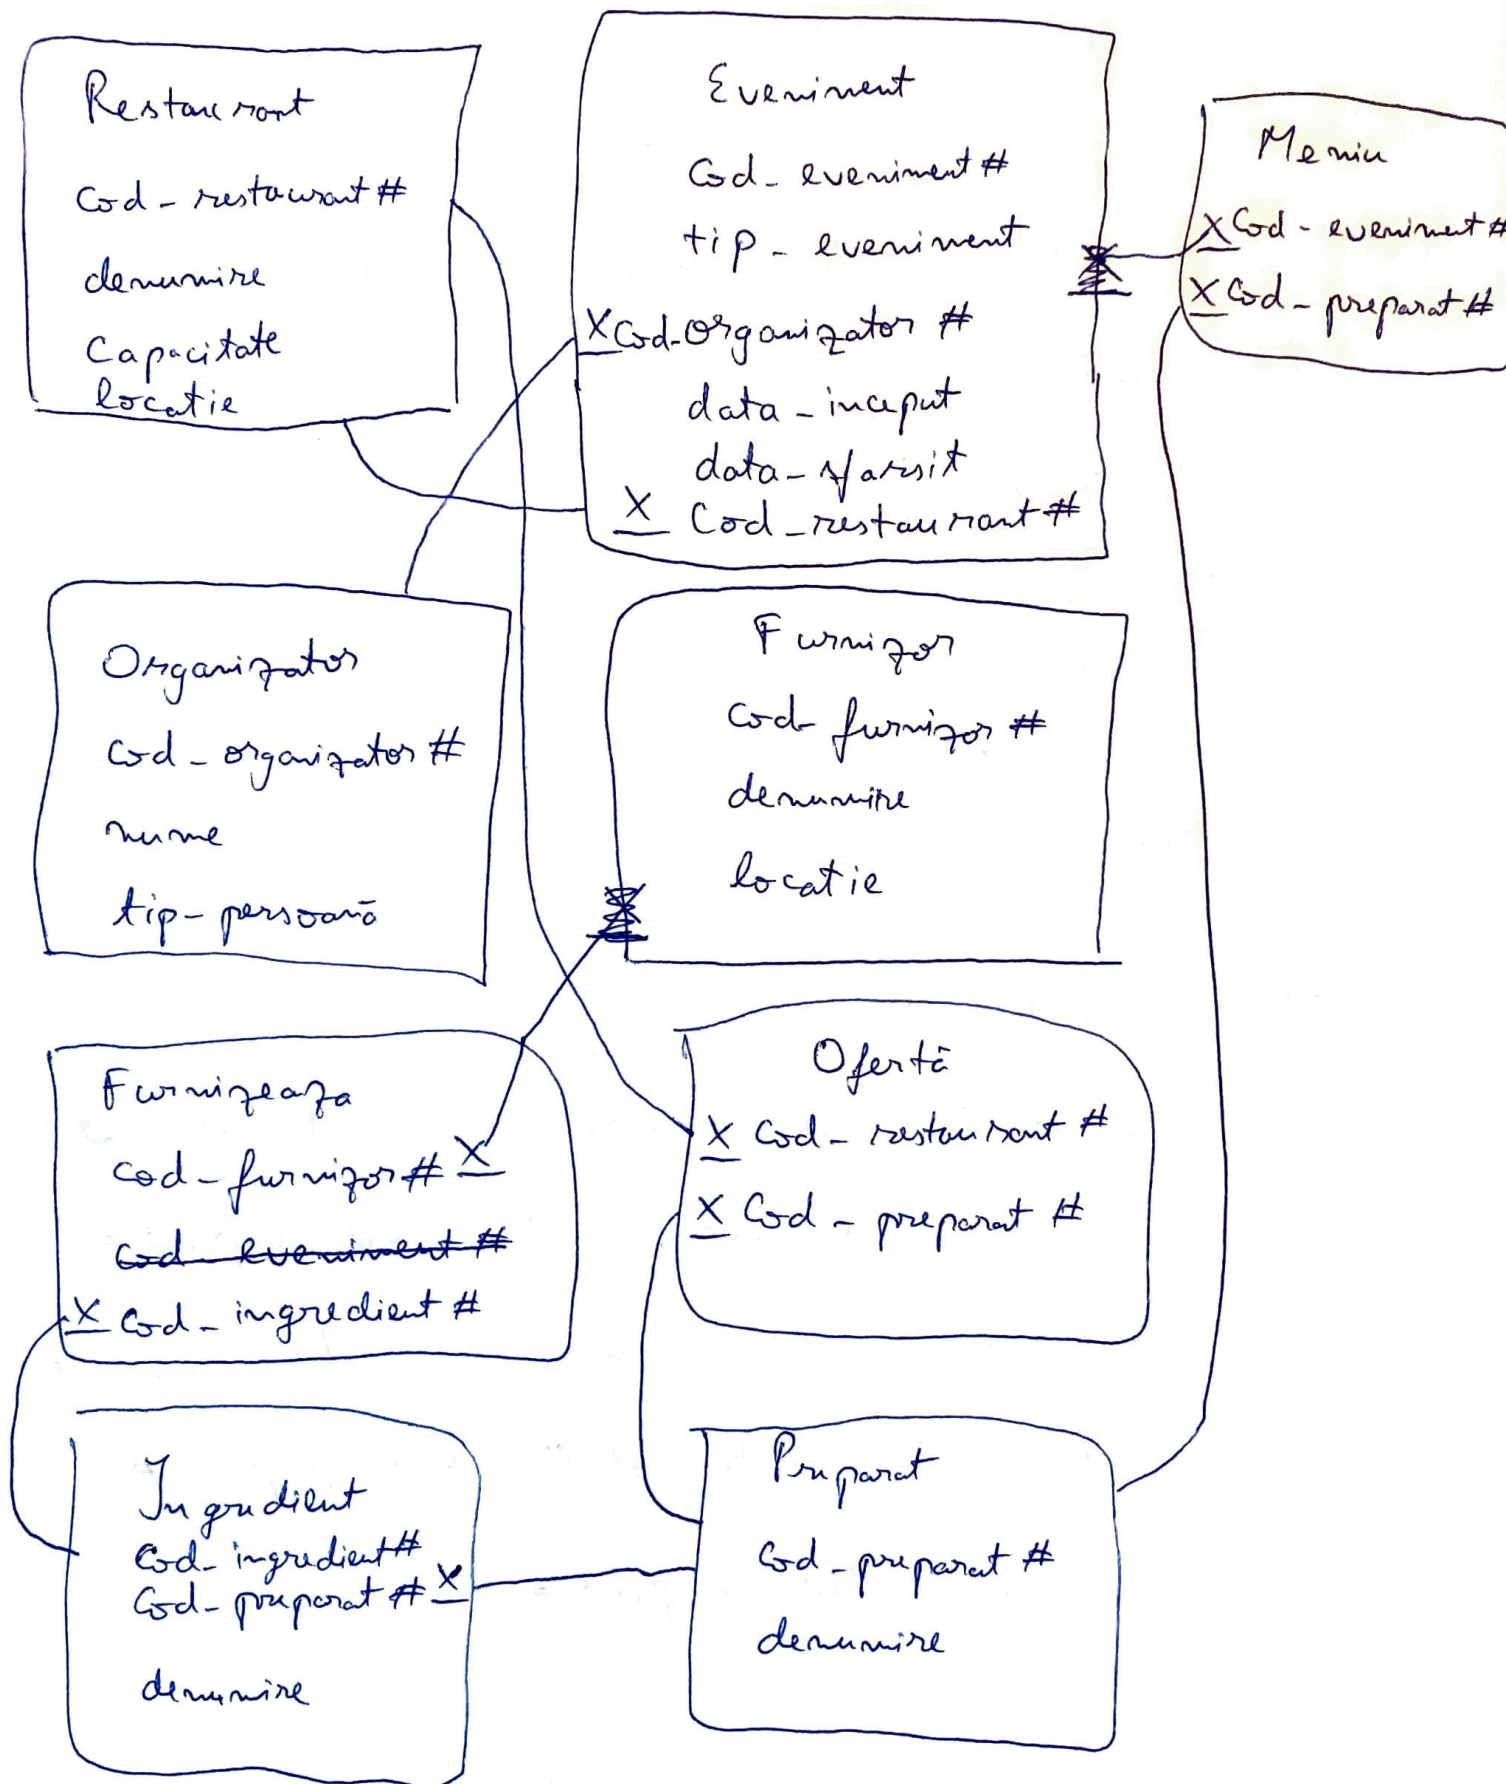 Restaurant
Cod-restaurant #
denumire
Capacitate
locatie
Eveniment
Cod-eveniment #
tip-eveniment
X Cod-organizator #
data-inceput
data-sfarsit
X Cod-restaurant #
Meniu
X Cod-eveniment #
X Cod-preparat #
Organizator
Cod-organizator #
nume
tip-persoană
Furnizor
Cod-furnizor #
denumire
locatie
Furnizeaza
cod-furnizor # X
Cod-eveniment #
X Cod-ingredient #
Ofertă
X Cod-restaurant #
X Cod-preparat #
Ingredient
Cod-ingredient #
Cod-preparat # X
denumire
Preparat
Cod-preparat #
denumire